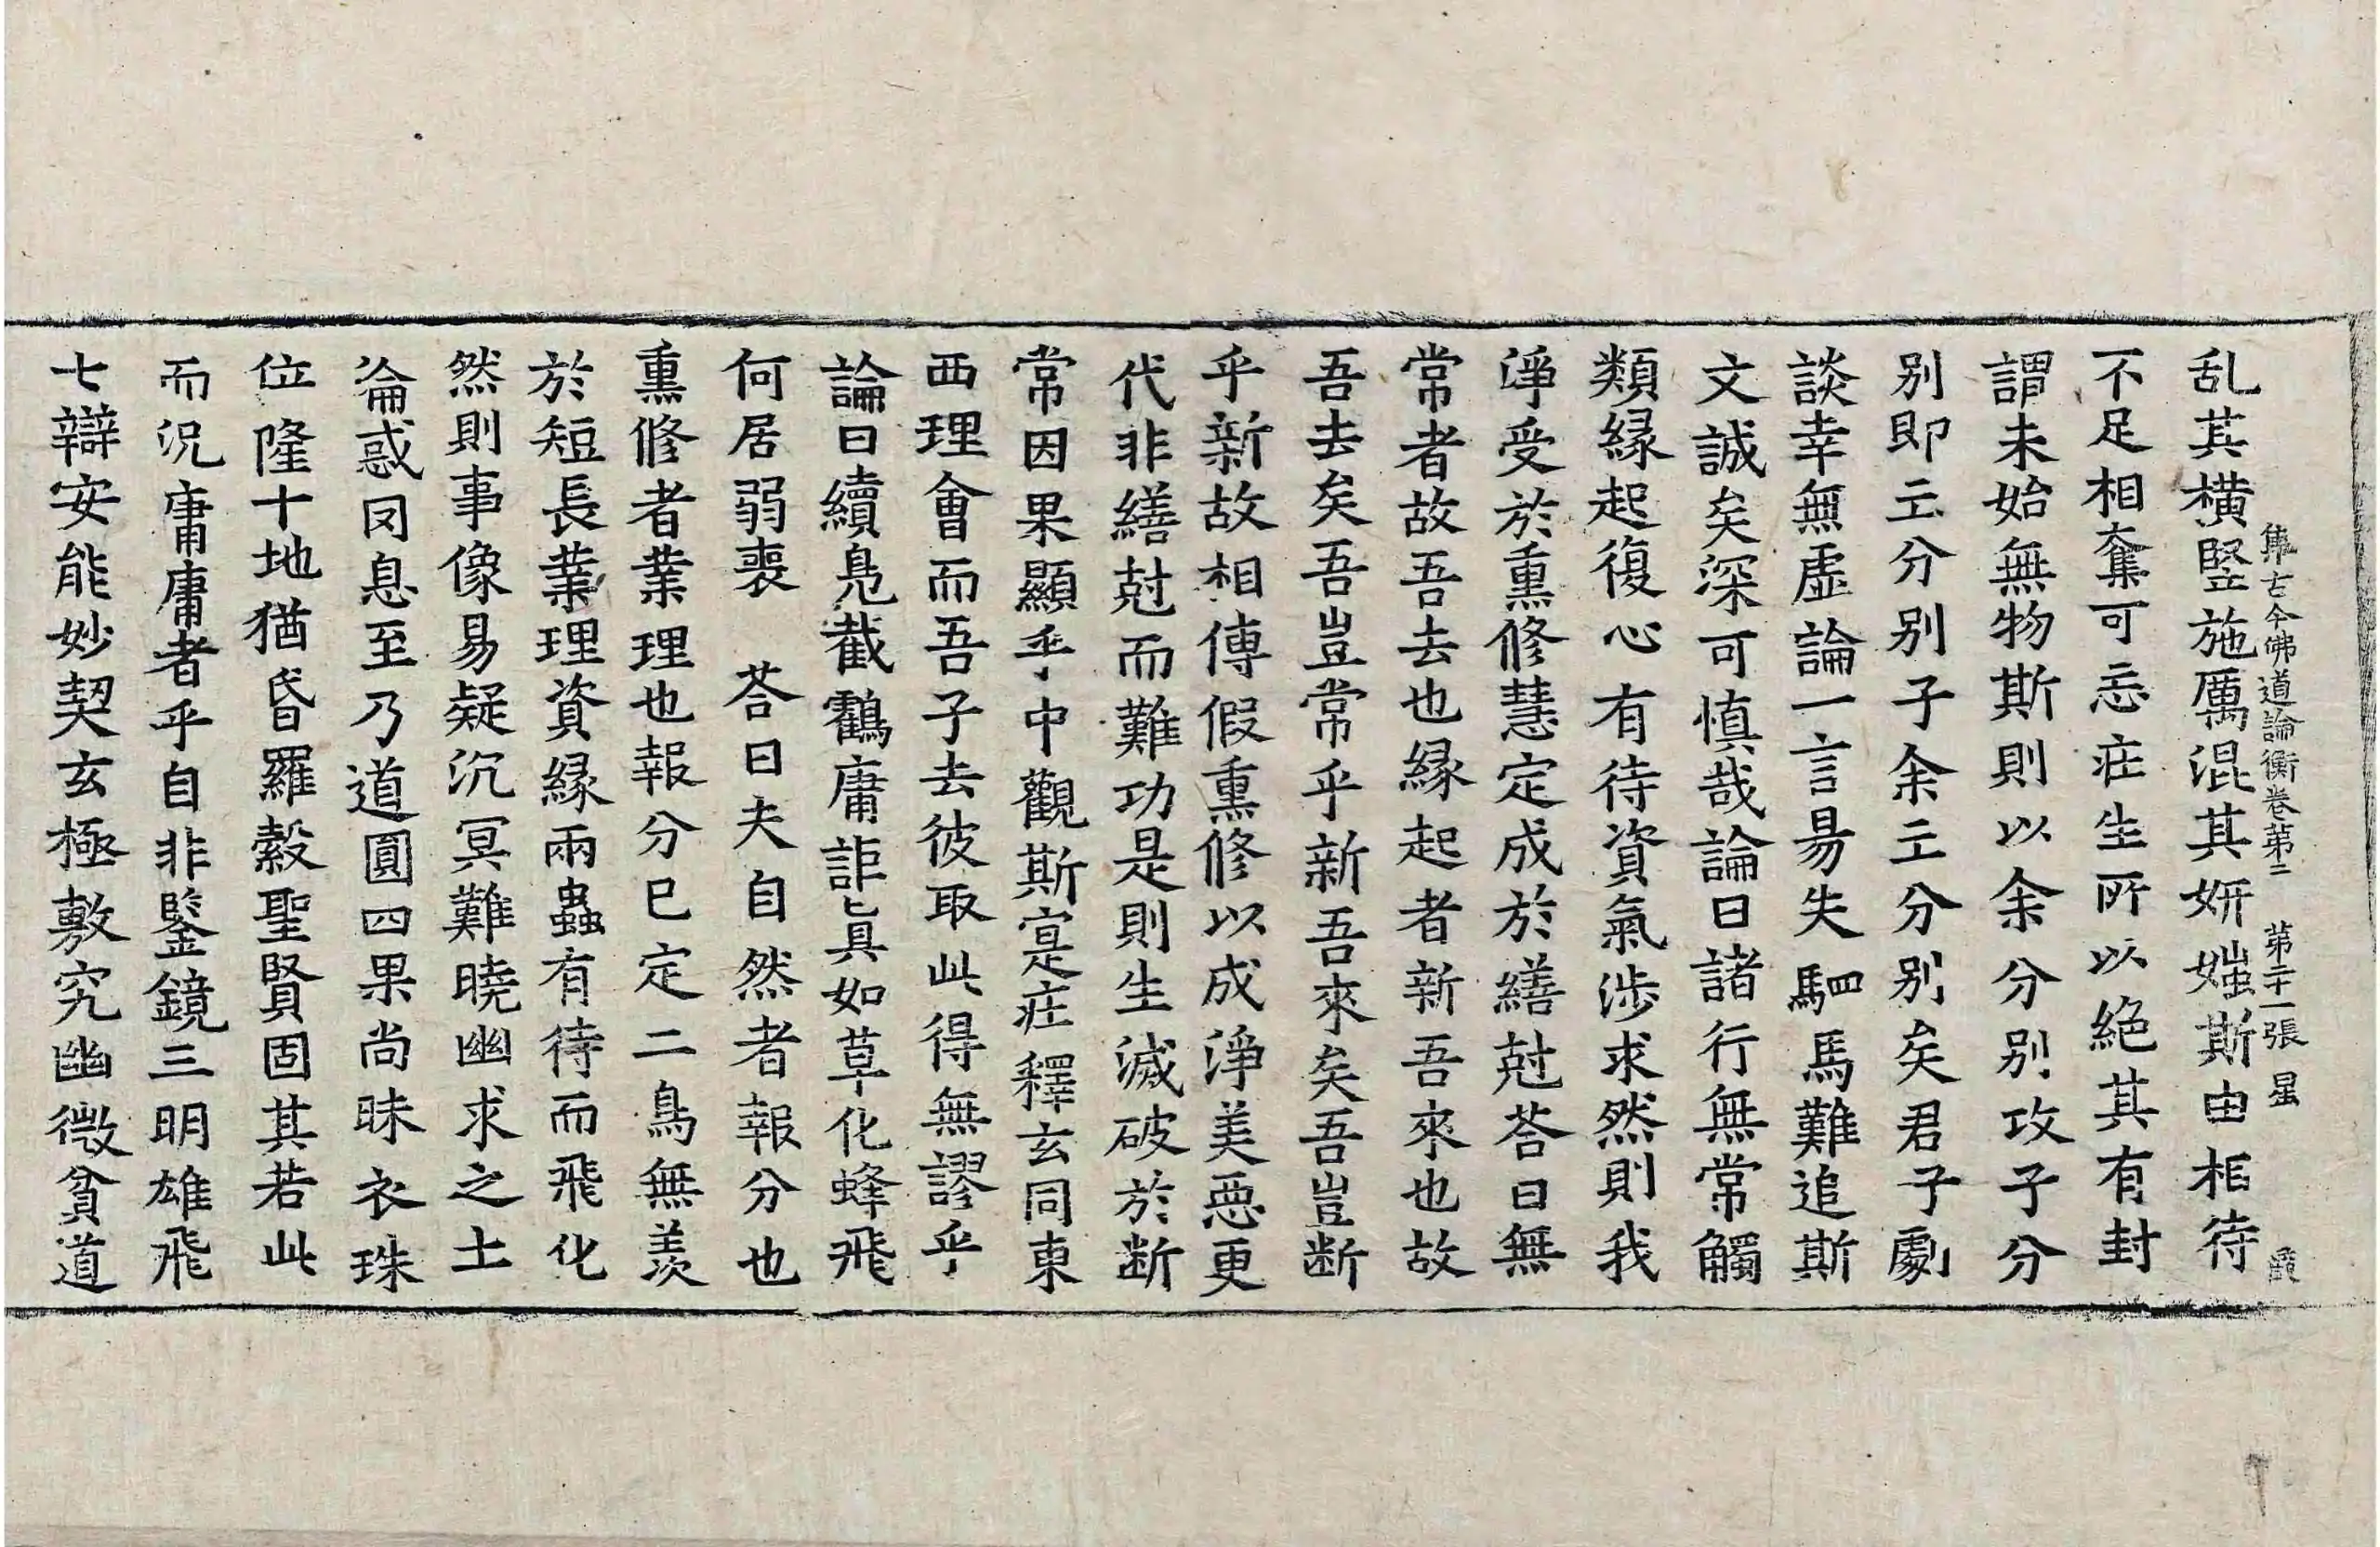 集古今佛道論衡卷第二 第二十一張 星
乱其橫竪施厲混其妍媸斯由相待
不足相奪可忘庄生所以絕其有封
謂未始無物斯則以余分别攻子分
别即亡分别子余亡分别矣君子劇
談幸無虛論一言易失駟馬難追斯
文誠矣深可慎哉論曰諸行無常觸
類緣起復心有待資氣涉求然則我
淨受於熏修慧定成於繕剋荅曰無
常者故吾去也緣起者新吾來也故
吾去矣吾豈常乎新吾來矣吾豈断
乎新故相傳假熏修以成淨美惡更
代非繕剋而難功是則生滅破於断
常因果顯乎中觀斯寔庄釋玄同東
西理會而吾子去彼取此得無謬乎
論曰續鳧截鶴庸詎眞如草化蜂飛
何居弱喪 荅曰夫自然者報分也
熏修者業理也報分已定二鳥無羨
於短長業理資緣兩蟲有待而飛化
然則事像易疑沉冥難曉幽求之士
淪惑罔息至乃道圓四果尚昧衣珠
位隆十地猶昏羅縠聖賢固其若此
而況庸庸者乎自非鑒鏡三明雄飛
七辯安能妙契玄極敷究幽微貧道